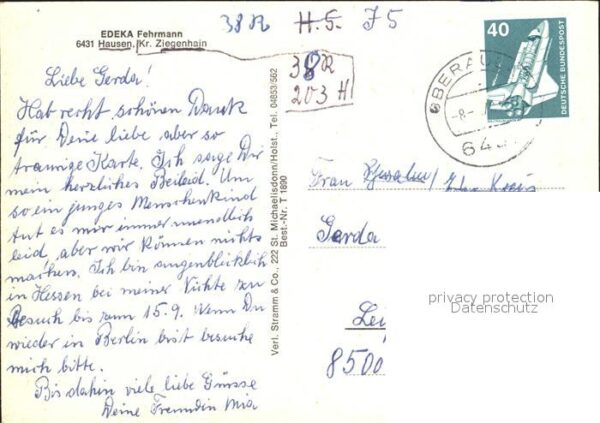 38R H.S. J5
EDEKA Fehrmann
6431 Hausen, Kr. Ziegenhain
38R
203 H
40
DEUTSCHE BUNDESPOST
OBERAU
-8.-
643
Liebe Gerda!
Hab recht schönen Dank
für Deine liebe aber so
traurige Karte. Ich sage Dir
mein herzliches Beileid. Um
so ein junges Menschenkind
tut es mir immer unendlich
leid, aber wir können nichts
machen. Ich bin augenblicklich
in Hessen bei meiner Nichte zu
Besuch bis zum 15.9. Wenn Du
wieder in Berlin bist besuche
mich bitte.
Bis dahin viele liebe Grüsse
Deine Freundin Mia
Verl. Stramm & Co., 222 St. Michaelisdonn/Holst., Tel. 04853/562
Best.-Nr. T 1890
Frau
Gerda
Lei
8500
privacy protection
Datenschutz